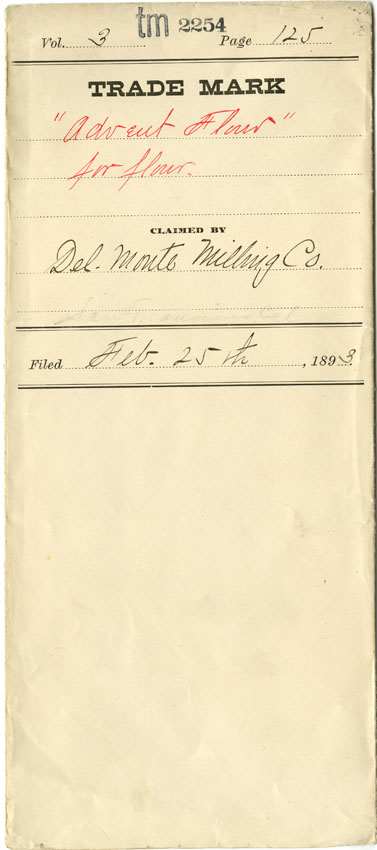 tm 2254
Vol. 3 Page 125
TRADE MARK
"Advent Flour"
for flour.
CLAIMED BY
Del. Monte Milling Co.
San Francisco Cal
Filed Feb. 25th, 1893.